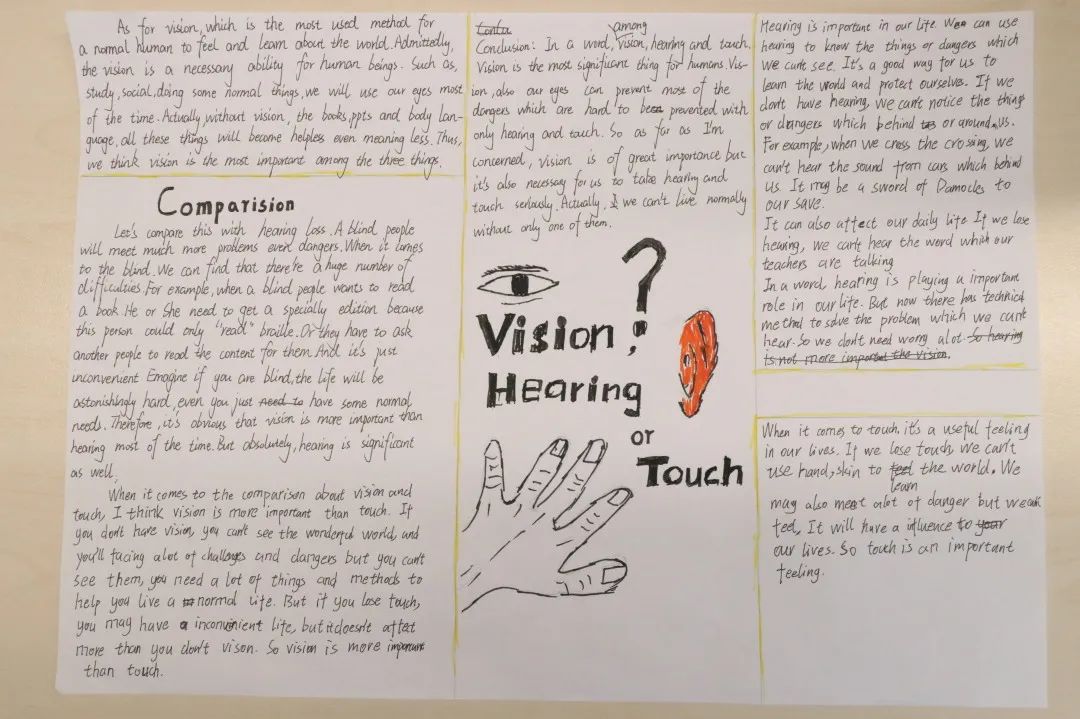 As for vision, which is the most used method for
a normal human to feel and learn about the world. Admittedly,
the vision is a necessary ability for human beings. Such as,
study, social, doing some normal things, we will use our eyes most
of the time. Actually, without vision, the books, ppts and body lan-
guage, all these things will become helpless even meaning less. Thus,
we think vision is the most important among the three things.
Comparision
Let's compare this with hearing loss. A blind people
will meet much more problems even dangers. When it comes
to the blind. We can find that there're a huge number of
difficulties. For example, when a blind people wants to read
a book. He or She need to get a specially edition because
this person could only "read" braille. Or they have to ask
another people to read the content for them. And it's just
inconvenient. Emagine if you are blind, the life will be
astonishingly hard, even you just need to have some normal
needs. Therefore, it's obvious that vision is more important than
hearing most of the time. But absolutely, hearing is significant
as well.
When it comes to the comparison about vision and
touch, I think vision is more important than touch. If
you don't have vision, you can't see the wonderful world, and
you'll facing alot of challenges and dangers but you can't
see them, you need a lot of things and methods to
help you live a normal life. But if you lose touch,
you may have a inconvinient life, but it doesn't affect
more than you don't vison. So vision is more important
than touch.
among
Conclusion: In a word, vision, hearing and touch.
Vision is the most significant thing for humans. Vis-
ion, also our eyes can prevent most of the
dangers which are hard to be prevented with
only hearing and touch. So as far as I'm
concerned, vision is of great importance but
it's also necessary for us to take hearing and
touch seriously. Actually, we can't live normally
without only one of them.
?
Vision,
Hearing
or
Touch
Hearing is important in our life. We can use
hearing to know the things or dangers which
we can't see. It's a good way for us to
learn the world and protect ourselves. If we
don't have hearing, we can't notice the things
or dangers which behind or around us.
For example, when we cross the crossing, we
can't hear the sound from cars which behind
us. It may be a sword of Damocles to
our save.
It can also affect our daily life If we lose
hearing, we can't hear the word which our
teachers are talking
In a word, hearing is playing a important
role in our life. But now there has technical
method to solve the problem which we can't
hear. So we don't need worry alot. So hearing
is not more important the vision.
When it comes to touch, it's a useful feeling
in our lives. If we lose touch, we can't
use hand, skin to feel the world. We
learn
may also meet alot of danger but we can't
feel, It will have a influence to your
our lives. So touch is an important
feeling.